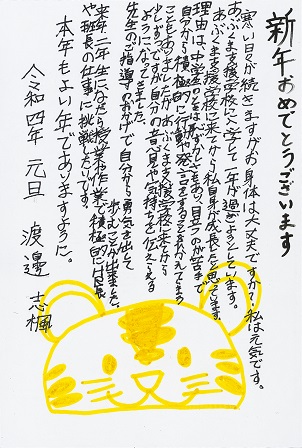 新年おめでとうございます
寒い日々が続きますがお身体は大丈夫ですか？私は元気です。
あぶくま支援学校に入学して一年が過ぎようとしています。
あぶくま支援学校に来てから私自身が成長したと思っています。
理由は、中学校のときははずかしさもあり、目立つのが苦手で
自分から積極的に行動や発言をすることをひかえてます
こともありましたがあぶくま支援学校に来てから
少しずつですが自分の意見や気持ちを伝える
ようになってきました。
先生のご指導のおかげで自分から勇気を出して
歩むことが出来ました。
来年二年生になったら授業や作業で積極的に班長
や班長の仕事に挑戦したいです。
本年もよい年でありますように。
令和四年 元旦 渡邉 志楓